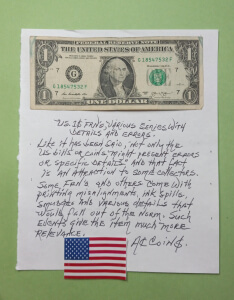 FEDERAL RESERVE NOTE
THE UNITED STATES OF AMERICA
G 18547532 F
G
G 18547532 F
ONE DOLLAR
"US 1$ FRNS, VARIOUS SERIES WITH
DETAILS AND ERRORS.
LIKE IT HAS BEEN SAID, "NOT ONLY THE
US BILLS OR COINS MIGHT PRESENT ERRORS
OR SPECIFIC DETAILS" AND THAT FACT
IS AN ATTRACTION TO SOME COLLECTORS.
SOME FRNS AND OTHERS COME WITH
PRINTING MISALIGNMENTS, INK SPILLS,
SMUDGES AND VARIOUS DETAILS THAT
WOULD FALL OUT OF THE NORM. SUCH
EVENTS GIVE THE ITEM MUCH MORE
RELEVANCE.
AC COIN$.